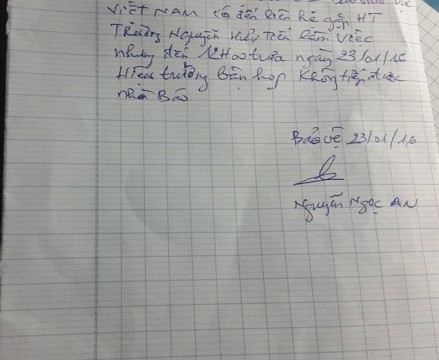 Việt Nam có đến liên hệ gặp HT
Trường Nguyễn Hữu Tiến làm việc
nhưng đến 12H00 trưa ngày 23/01/16
Hiệu trưởng bận họp không tiếp được
nhà Báo
Bảo vệ 23/01/16
Nguyễn Ngọc An